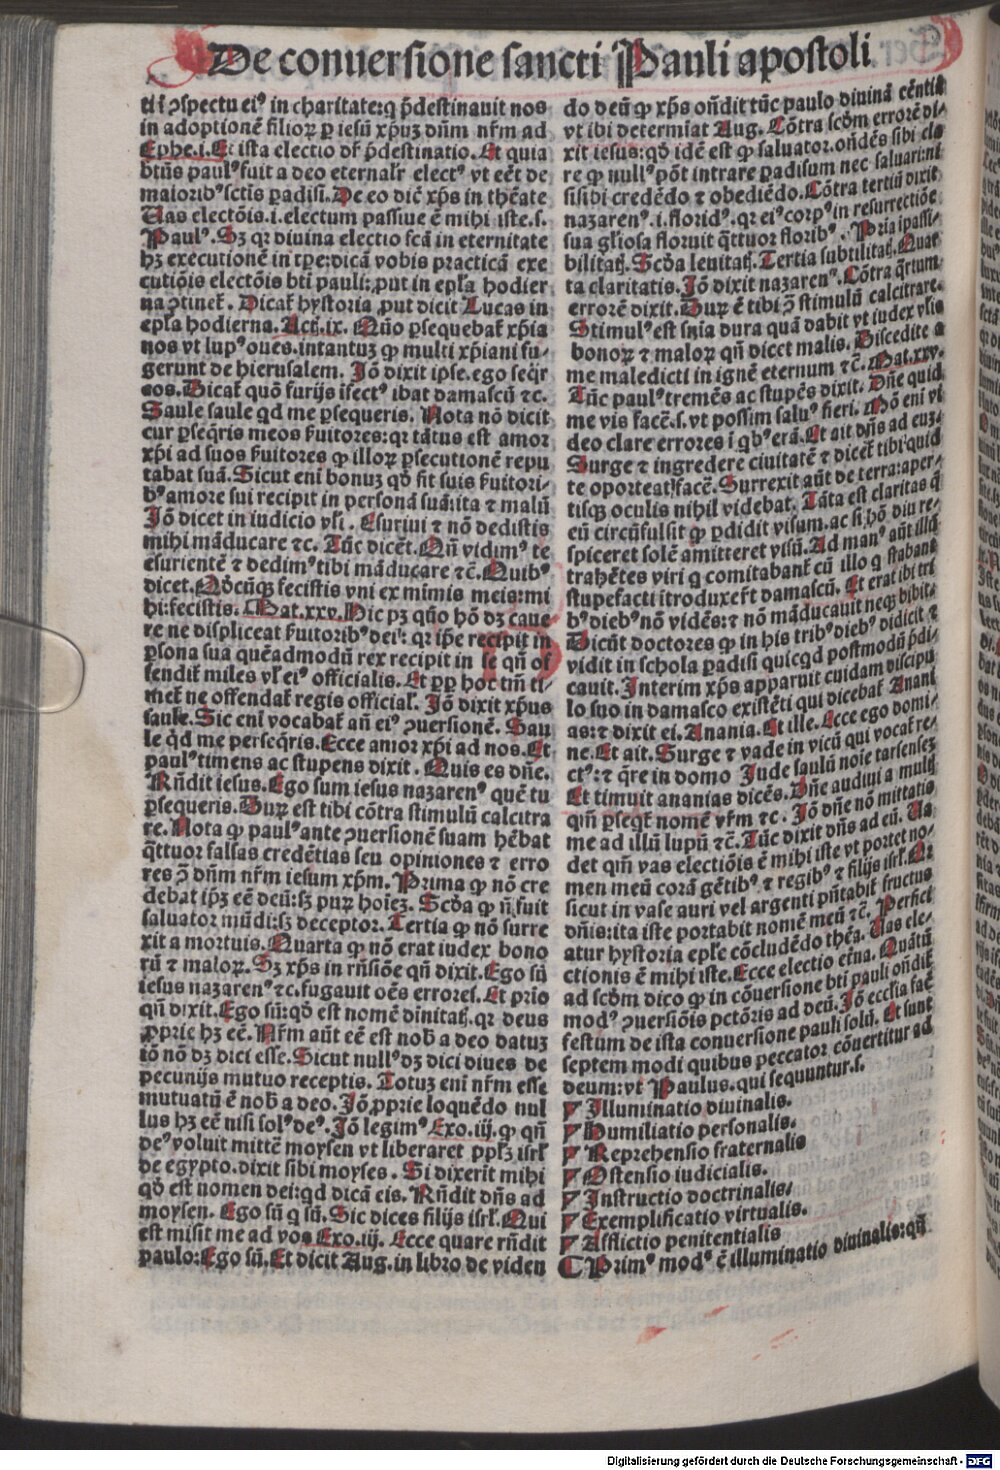 De conuersione sancti Pauli apostoli
ti ī ↄspectu ei⁹ in charitate:q p̄destinauit nos
in adoptionē filioꝝ ꝑ iesū xp̄uꝫ dn̄m nr̄m ad
Ephe.i. Et ista electio dr̄ p̄destinatio. Et quia
btūs paul⁹ fuit a deo eternalr̄ elect⁹ vt eēt de
maiorib⁹ sctīs ꝑadisi. De eo dic̄ xp̄s in thēate
Uas electōis.i.electum passiue ē mihi iste.s.
Paul⁹. Sꝫ qr diuina electio fcā in eternitate
hꝫ executionē in tꝑe:dicā vobis practicā exe
cutiōis electōis bti pauli:ꝓut in epl̄a hodier
na ↄtinet̄. Dicat̄ hystoria ꝓut dicit Lucas in
epl̄a hodierna. Act.ix. Qn̄o ꝑsequebat̄ xp̄ia
nos vt lup⁹ oues.intantuꝫ ꝙ multi xp̄iani fu-
gerunt de hierusalem. Iō dixit ipse.ego seq̄r
eos. Dicat̄ quō furijs īfect⁹ ibat damascū ⁊c.
Saule saule qd me ꝑsequeris. Nota nō dicit
cur ꝑseq̄ris meos ẜuitores:qr tātus est amor
xp̄i ad suos ẜuitores ꝙ illoꝝ ꝑsecutionē repu
tabat suā. Sicut eni bonuꝫ qd̄ fit suis ẜuitori-
b⁹ amore sui recipit in personā suā:ita ⁊ malū
Iō dicet in iudicio vl̄i. Esuriui ⁊ nō dedistis
mihi māducare ⁊c. Tūc dicēt. Qn̄ vidim⁹ te
esurientē ⁊ dedim⁹ tibi māducare ⁊c̄. Quib⁹
dicet. Qd̄cūqꝫ fecistis vni ex mimis meis:mi
hi:fecistis. Mat.xxv. Hic pꝫ quō hō dꝫ caue
re ne displiceat ẜuitorib⁹ dei: qr ip̄e recipit in
ꝑsona sua quēadmodū rex recipit in se qn̄ of
fendit̄ miles vl̄ ei⁹ officialis. Et ꝓp̄ hoc tm̄ ti-
met̄ ne offendat̄ regis official̄. Iō dixit xp̄us
saule. Sic eni vocabat̄ an̄ ei⁹ ↄuersionē. Sau
le qd̄ me perseq̄ris. Ecce amor xp̄i ad nos. Et
paul⁹ timens ac stupens dixit. Quis es dn̄e.
Rn̄dit iesus. Ego sum iesus nazaren⁹ quē tu
ꝑsequeris. Duꝝ est tibi cōtra stimulū calcitra
re. Nota ꝙ paul⁹ ante ↄuersionē suam hēbat
q̄ttuor falsas credētias seu opiniones ⁊ erro
res ↄ̄ dn̄m nr̄m iesum xp̄m. Prima ꝙ nō cre
debat ip̄ꝫ eē deū:sꝫ puꝝ hoieꝫ. Scd̄a ꝙ n̄ fuit
saluator mūdi:sꝫ deceptor. Tertia ꝙ nō surre
xit a mortuis. Quarta ꝙ nō erat iudex bono
rū ⁊ maloꝝ. Sꝫ xp̄s in rn̄siōe qn̄ dixit. Ego sū
iesus nazaren⁹ ⁊c.fugauit oēs errores. Et prīo
qn̄ dixit. Ego sū:qd̄ est nomē dinitatꝭ.qr deus
ꝓprie hꝫ eē. Nr̄m aūt eē est nob̄ a deo datuꝫ
iō nō dꝫ dici esse. Sicut null⁹ dꝫ dici diues de
pecunijs mutuo receptis. Totuꝫ eni nr̄m esse
mutuatū ē nob̄ a deo. Iō ꝓprie loquēdo nul
lus hꝫ eē nisi sol⁹ de⁹. Iō legim⁹ Exo.iij. ꝙ qn̄
de⁹ voluit mittē moysen vt liberaret ppl̄ꝫ isrl̄
de egypto.dixit sibi moyses. Si dixerit mihi
qd̄ est nomen dei:qd dicā eis. Rn̄dit dn̄s ad
moysen. Ego sū q sū. Sic dices filijs isrl̄. Qui
est misit me ad vos Exo.iij. Ecce quare rn̄dit
paulo:Ego sū. Et dicit Aug.in libro de viden
do deū ꝙ xp̄s on̄dit tūc paulo diuinā cēntiā
vt ibi determīat Aug. Cōtra scd̄m errorē di-
xit iesus:qd̄ idē est ꝙ saluator.ondēs sibi cla
re ꝙ null⁹ pōt intrare ꝑadisum nec saluari:ni
sisibi credēdo ⁊ obediēdo. Cōtra tertiū dixit
nazaren⁹.i.florid⁹.qr ei⁹ corp⁹ in resurrectiōe
sua gl̄iosa floruit q̄ttuor florib⁹. Pria ipassi-
bilitatꝭ. Scd̄a leuitatꝭ. Tertia subtilitatꝭ. Quar
ta claritatis. Iō dixit nazaren⁹. Cōtra q̄rtum
errorē dixit. Duꝝ ē tibi ↄ̄ stimulū calcitrare.
Stimul⁹ est snīa dura quā dabit vt iudex vl̄is
bonoꝝ ⁊ maloꝝ qn̄ dicet malis. Discedite a
me maledicti in ignē eternum ⁊c̄. Mat.xxv.
Tūc paul⁹ tremēs ac stupēs dixit. Dn̄e quid
me vis facē.s.vt possim salu⁹ fieri. Nō eni vi
deo clare errores ī qb⁹ erā. Et ait dn̄s ad euꝫ.
Surge ⁊ ingredere ciuitatē ⁊ dicet̄ tibi quid
te oporteat facē. Surrexit aūt de terra:aper-
tisqꝫ oculis nihil videbat. Tāta est claritas q̄
eū circūfulsit ꝙ ꝑdidit visum.ac si hō diu re-
spiceret solē amitteret visū. Ad man⁹ aūt illū
trahētes viri q comitabant̄ cū illo q stabant
stupefacti ītroduxer̄t damascū. Et erat ibi tri
b⁹ dieb⁹ nō vidēs:⁊ nō māducauit neqꝫ bibit.
Dicūt doctores ꝙ in his trib⁹ dieb⁹ didicit ⁊
vidit in schola ꝑadisi quicqd postmodū p̄di-
cauit. Interim xp̄s apparuit cuidam discipu
lo suo in damasco existēti qui dicebat̄ Anani
as:⁊ dixit ei. Anania. Et ille. Ecce ego domi-
ne. Et ait. Surge ⁊ vade in vicū qui vocat̄ re-
ct⁹:⁊ q̄re in domo Jude saulū noie tarsenseꝫ
Et timuit ananias dicēs. Dn̄e audiui a multꝭ
qm̄ ꝑseqt̄ nomē vr̄m ⁊c. Iō dn̄e nō mittatis
me ad illū lupū ⁊c̄. Tūc dixit dn̄s ad eū. Ua
det qm̄ vas electiōis ē mihi iste vt portet no-
men meū corā gētib⁹ ⁊ regib⁹ ⁊ filijs isrl̄. Qr
sicut in vase auri vel argenti pn̄tabit̄ fructus
dn̄is:ita iste portabit nomē meū ⁊c̄. Perfici
atur hystoria epl̄e cōcludēdo thēa. Uas ele-
ctionis ē mihi iste. Ecce electio et̄na. Quātū
ad scd̄m dico ꝙ in cōuersione bti pauli on̄dit̄
mod⁹ ↄuersiōis pctōris ad deū. Iō ecclīa fac̄
festum de ista conuersione pauli solū. Et sunt
septem modi quibus peccator cōuertitur ad
deum:vt Paulus.qui sequuntur.s.
Illuminatio diuinalis.
Humiliatio personalis.
Reprehensio fraternalis
Ostensio iudicialis.
Instructio doctrinalis.
Exemplificatio virtualis.
Afflictio penitentialis
Prim⁹ mod⁹ ē illuminatio diuinalis:qn̄
Digitalisierung gefördert durch die Deutsche Forschungsgemeinschaft - DFG